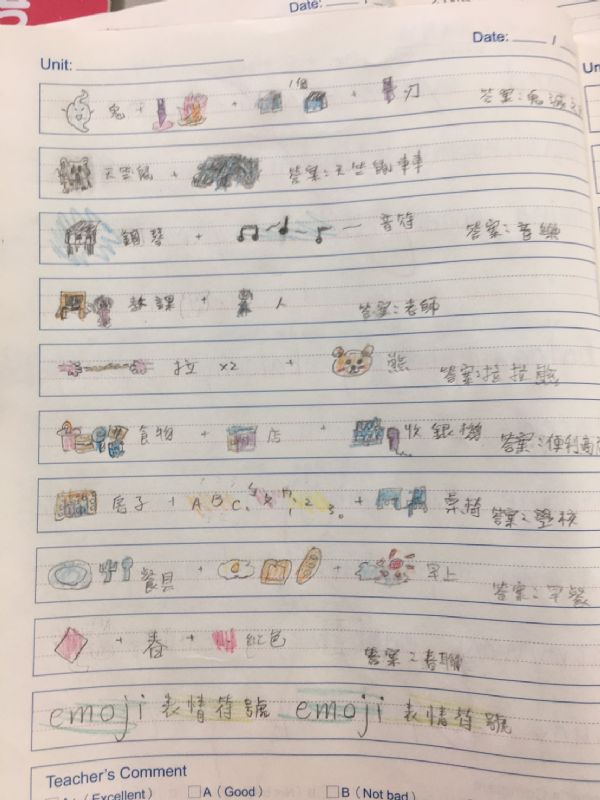 Date: 1
Date: 1
Unit:
鬼 + + 1個 + 刃 答案:鬼滅之
天竺鼠 + 答案:天竺鼠車車
鋼琴 + 音符 答案:音樂
教課 + 人 答案:老師
拉 x2 + 熊 答案:拉拉熊
食物 + 店 + 收銀機 答案:便利商
房子 + A B C 1 2 3。 + 桌椅 答案:學校
餐具 + + 早上 答案:早餐
+ 春 + 紅色 答案:春聯
emoji 表情符號 emoji 表情符號
Teacher's Comment
A+ (Excellent) A (Good) B (Not bad)